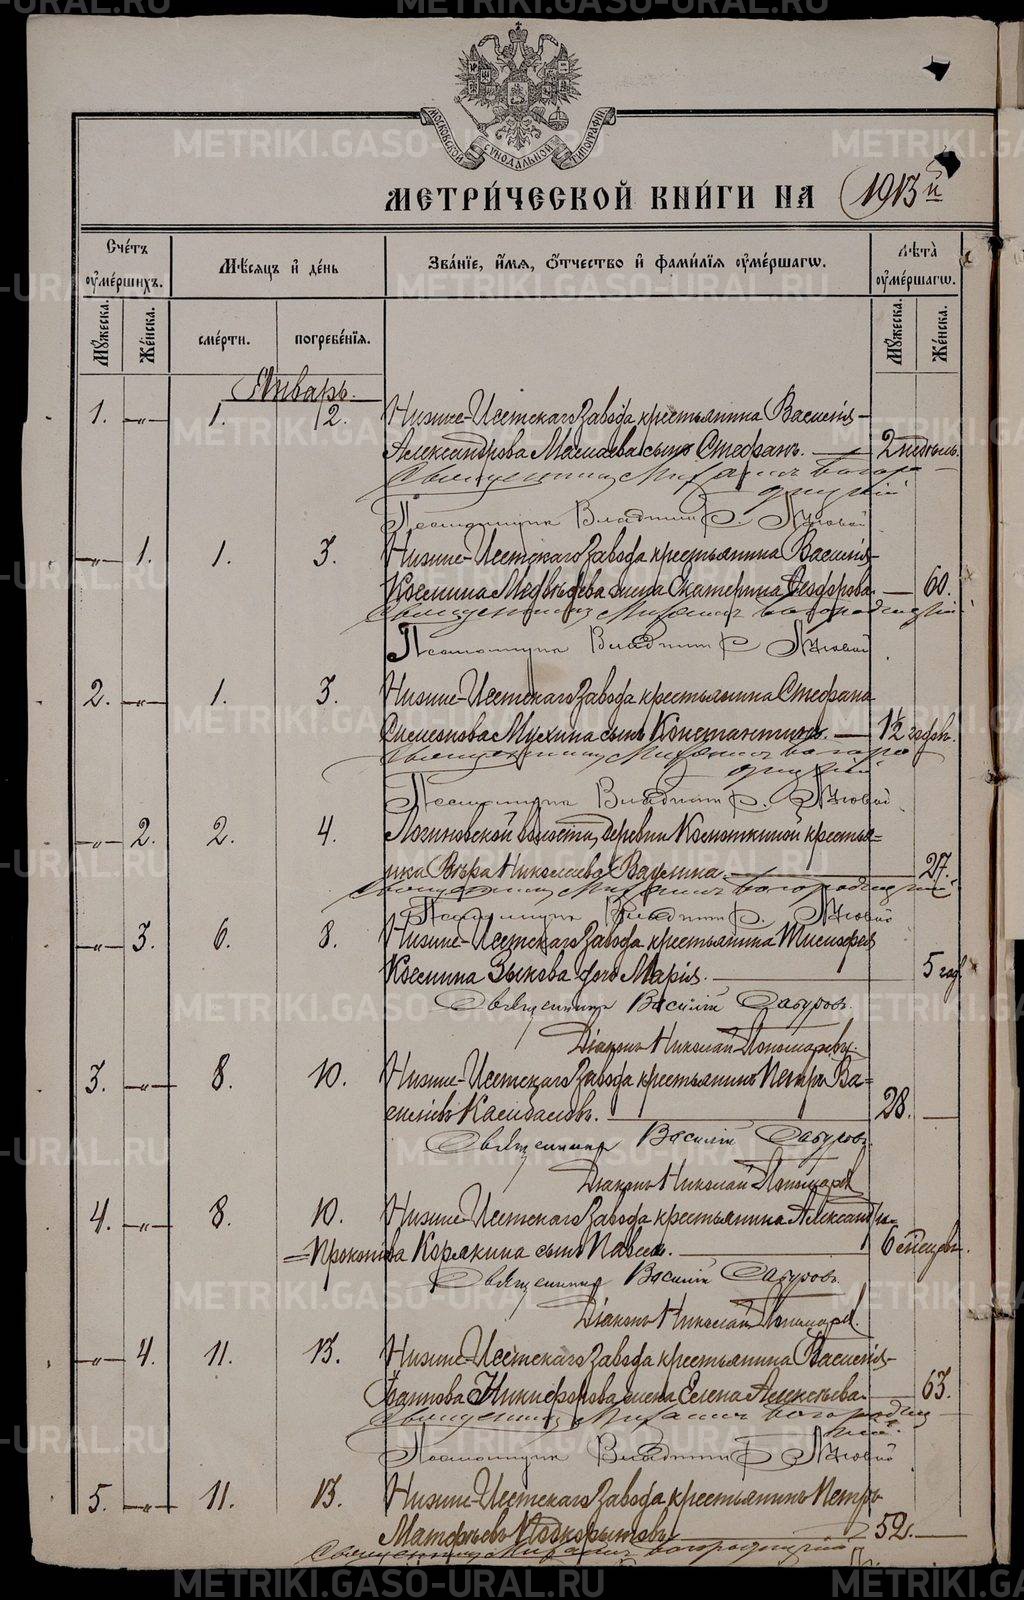 МОСКОВСКОЙ СѴНОДАЛЬНОЙ ТИПОГРАФІИ
МЕТРИ́ЧЕСКОЙ КНИ́ГИ НА 1913й
Сче́тъ ᲂумершихъ.
Мѣсяцъ и де́нь
Зва́нїе, и́мя, ѻ҆́тчество и фамилїя ᲂуме́ршагѡ.
Лѣта̀ ᲂуме́ршагѡ.
Мꙋжеска.
Же́нска.
сме́рти.
погребе́нїя.
Мꙋжеска.
Же́нска.
Январь.
1. -„- 1. 2. Нижне-Исетскаго завода крестьянина Василія
Александрова Масмаева сынъ Стефанъ. 2 недѣль.
Священникъ Михаилъ Богоро-
дицкій
Псаломщикъ Владимиръ Луговой
-„- 1. 1. 3. Нижне-Исетскаго завода крестьянина Василія
Космина Медвѣдева жена Екатерина Ѳеодорова. 60.
Священникъ Михаилъ Богородицкій
Псаломщикъ Владимиръ Луговой
2. -„- 1. 3. Нижне-Исетскаго завода крестьянина Стефана
Симеонова Мухина сынъ Константинъ. 1½ годовъ.
Священникъ Михаилъ Богоро-
дицкій
Псаломщикъ Владимиръ Луговой
-„- 2. 2. 4. Логиновской волости, деревни крестья-
нка Вѣра Николаева Ваулина. 27.
Священникъ Михаилъ Богородицкій
Псаломщикъ Владимиръ Луговой
-„- 3. 6. 8. Нижне-Исетскаго завода крестьянина Тимофея
Космина Зыкова дочь Марія. 5 год.
Священникъ Василій Сабуровъ.
Діаконъ Николай Пономаревъ.
3. -„- 8. 10. Нижне-Исетскаго завода крестьянинъ Петръ Ва-
сильевъ 28.
Священникъ Василій Сабуровъ.
Діаконъ Николай Пономаревъ
4. -„- 8. 10. Нижне-Исетскаго завода крестьянина Александра
Прокопіева Корякина сынъ Павелъ. 6 мѣсяцевъ.
Священникъ Василій Сабуровъ.
Діаконъ Николай Пономаревъ.
-„- 4. 11. 13. Нижне-Исетскаго завода крестьянина Василія
Іоаннова Никифорова жена Елена Алексѣева. 63.
Священникъ Михаилъ Богородиц-
кій.
Псаломщикъ Владимиръ Луговой
5. -„- 11. 13. Нижне-Исетскаго завода крестьянинъ Петръ
Матфѣевъ Подкорытовъ 52.
Священникъ Михаилъ Богородицкій
METRIKI.GASO-URAL.RU